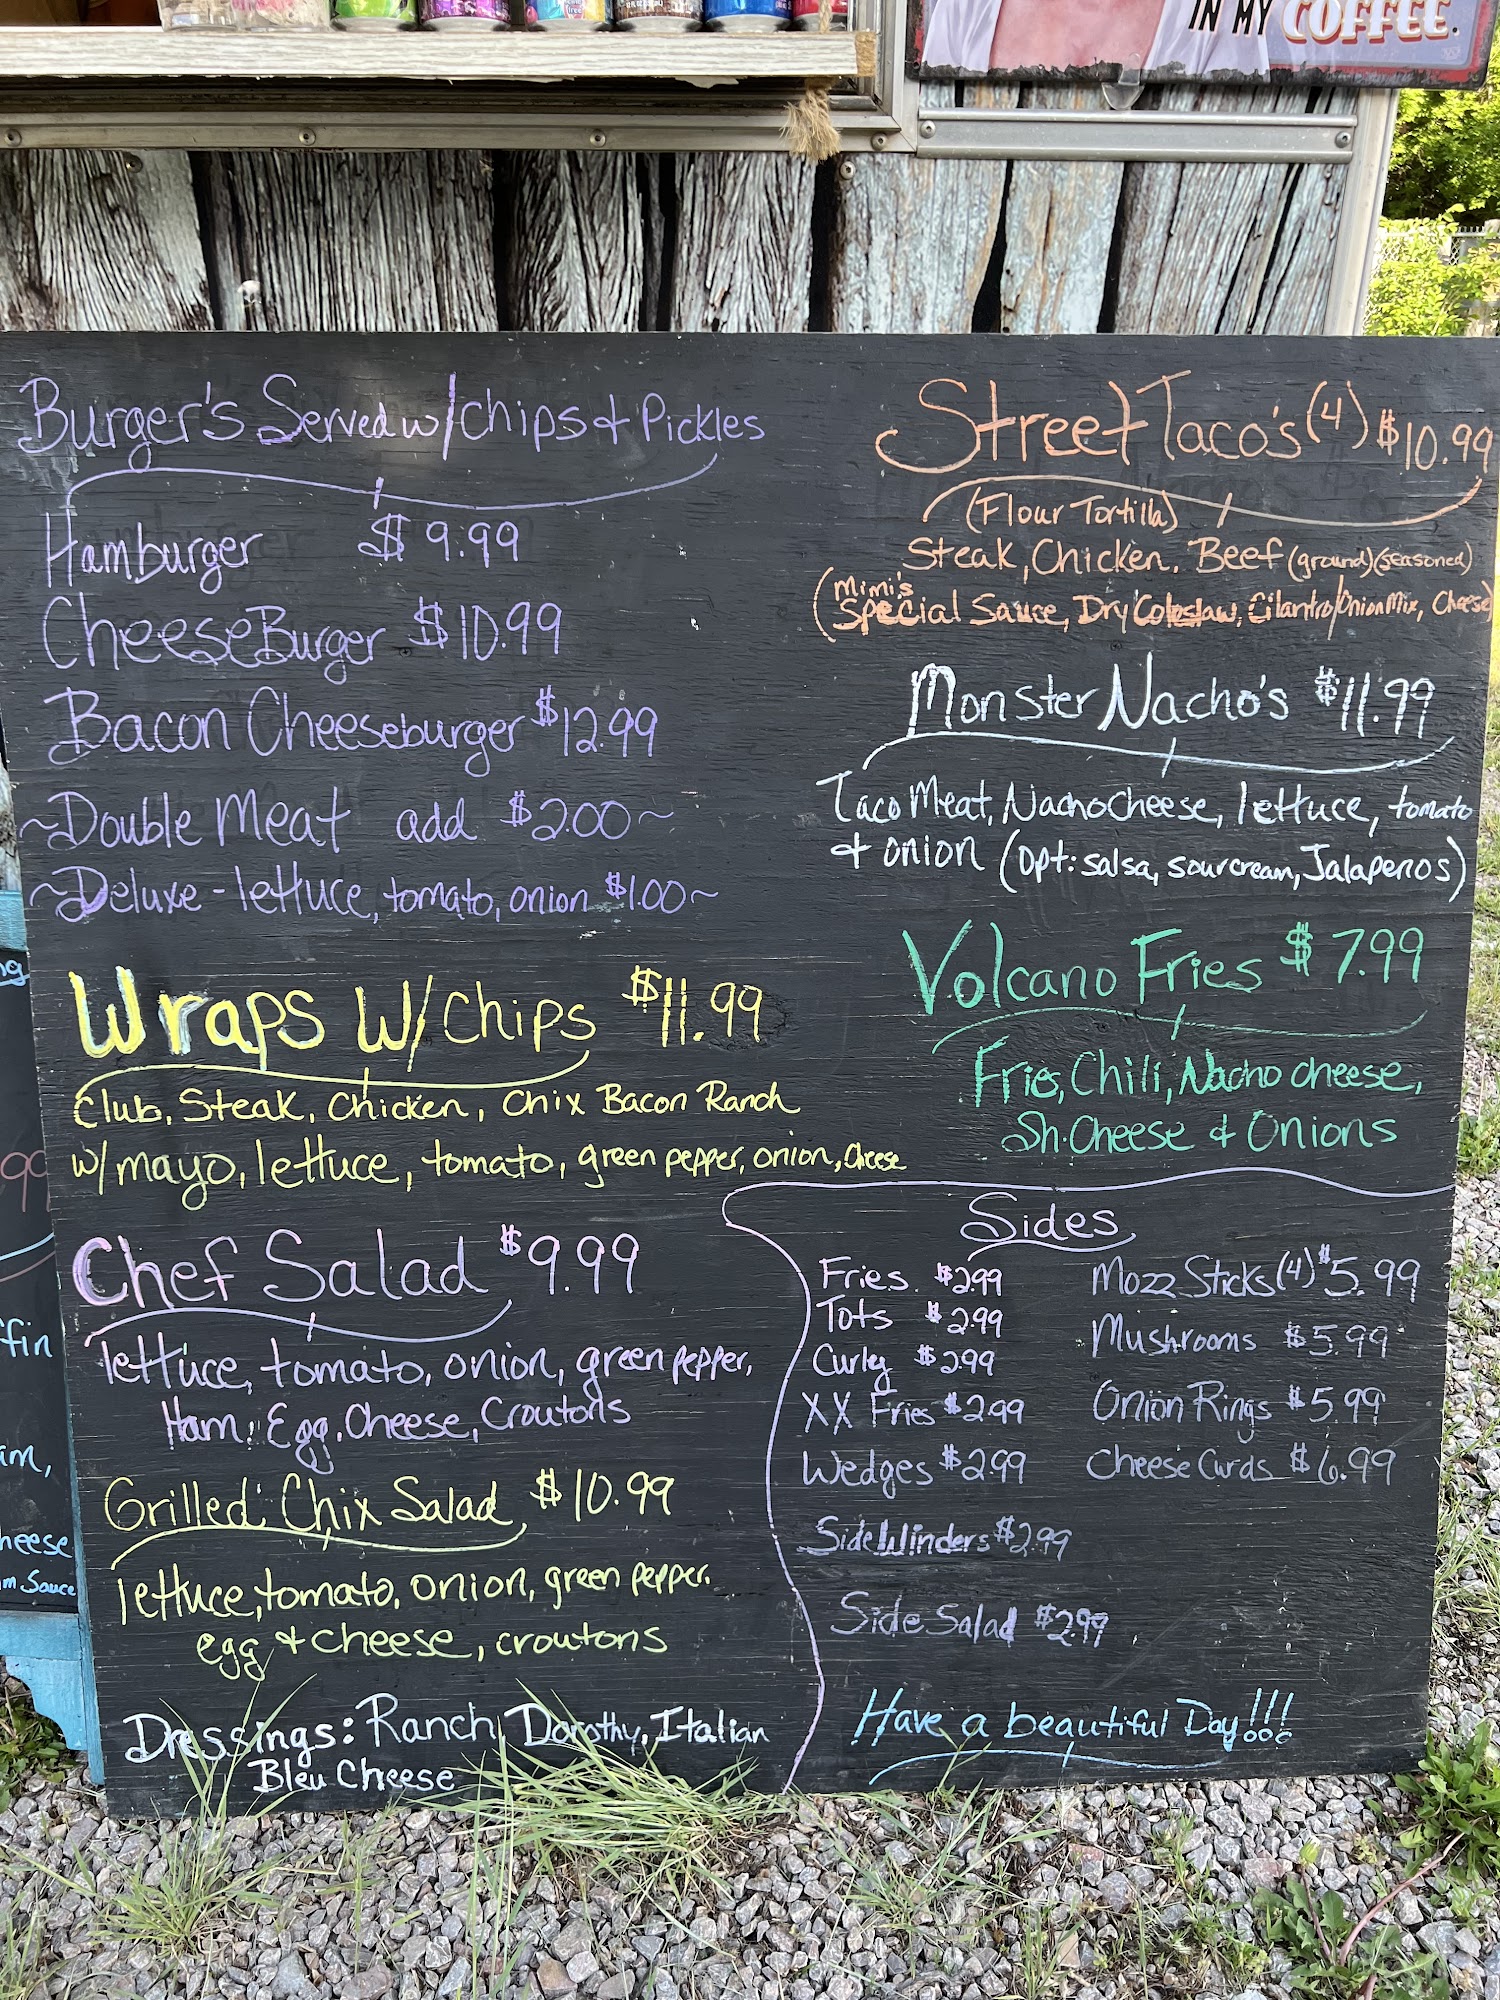 IN MY COFFEE.
Burger's Served w/chips & Pickles
Hamburger $9.99
CheeseBurger $10.99
Bacon Cheeseburger $12.99
~Double Meat add $2.00~
~Deluxe - lettuce, tomato, onion $1.00~
Wraps w/chips $11.99
Club, Steak, Chicken, Chix Bacon Ranch
w/mayo, lettuce, tomato, green pepper, onion, cheese
Chef Salad $9.99
lettuce, tomato, onion, green pepper,
Ham, Egg, Cheese, Croutons
Grilled Chix Salad $10.99
lettuce, tomato, onion, green pepper,
egg & cheese, croutons
Dressings: Ranch, Dorothy, Italian
Bleu Cheese
Street Taco's (4) $10.99
(Flour Tortilla)
Steak, Chicken, Beef (ground) (seasoned)
(Mimi's
Special Sauce, Dry Coleslaw, Cilantro/Onion Mix, Cheese)
Monster Nacho's $11.99
Taco Meat, Nacho Cheese, lettuce, tomato
& onion (opt: salsa, sour cream, Jalapenos)
Volcano Fries $7.99
Fries, Chili, Nacho cheese,
Sh. Cheese & Onions
Sides
Fries $2.99
Tots $2.99
Curly $2.99
XX Fries $2.99
Wedges $2.99
SideWinders $2.99
Side Salad $2.99
Mozz Sticks (4) $5.99
Mushrooms $5.99
Onion Rings $5.99
Cheese Curds $6.99
Have a beautiful Day!!!
99
ffin
heese
m Sauce